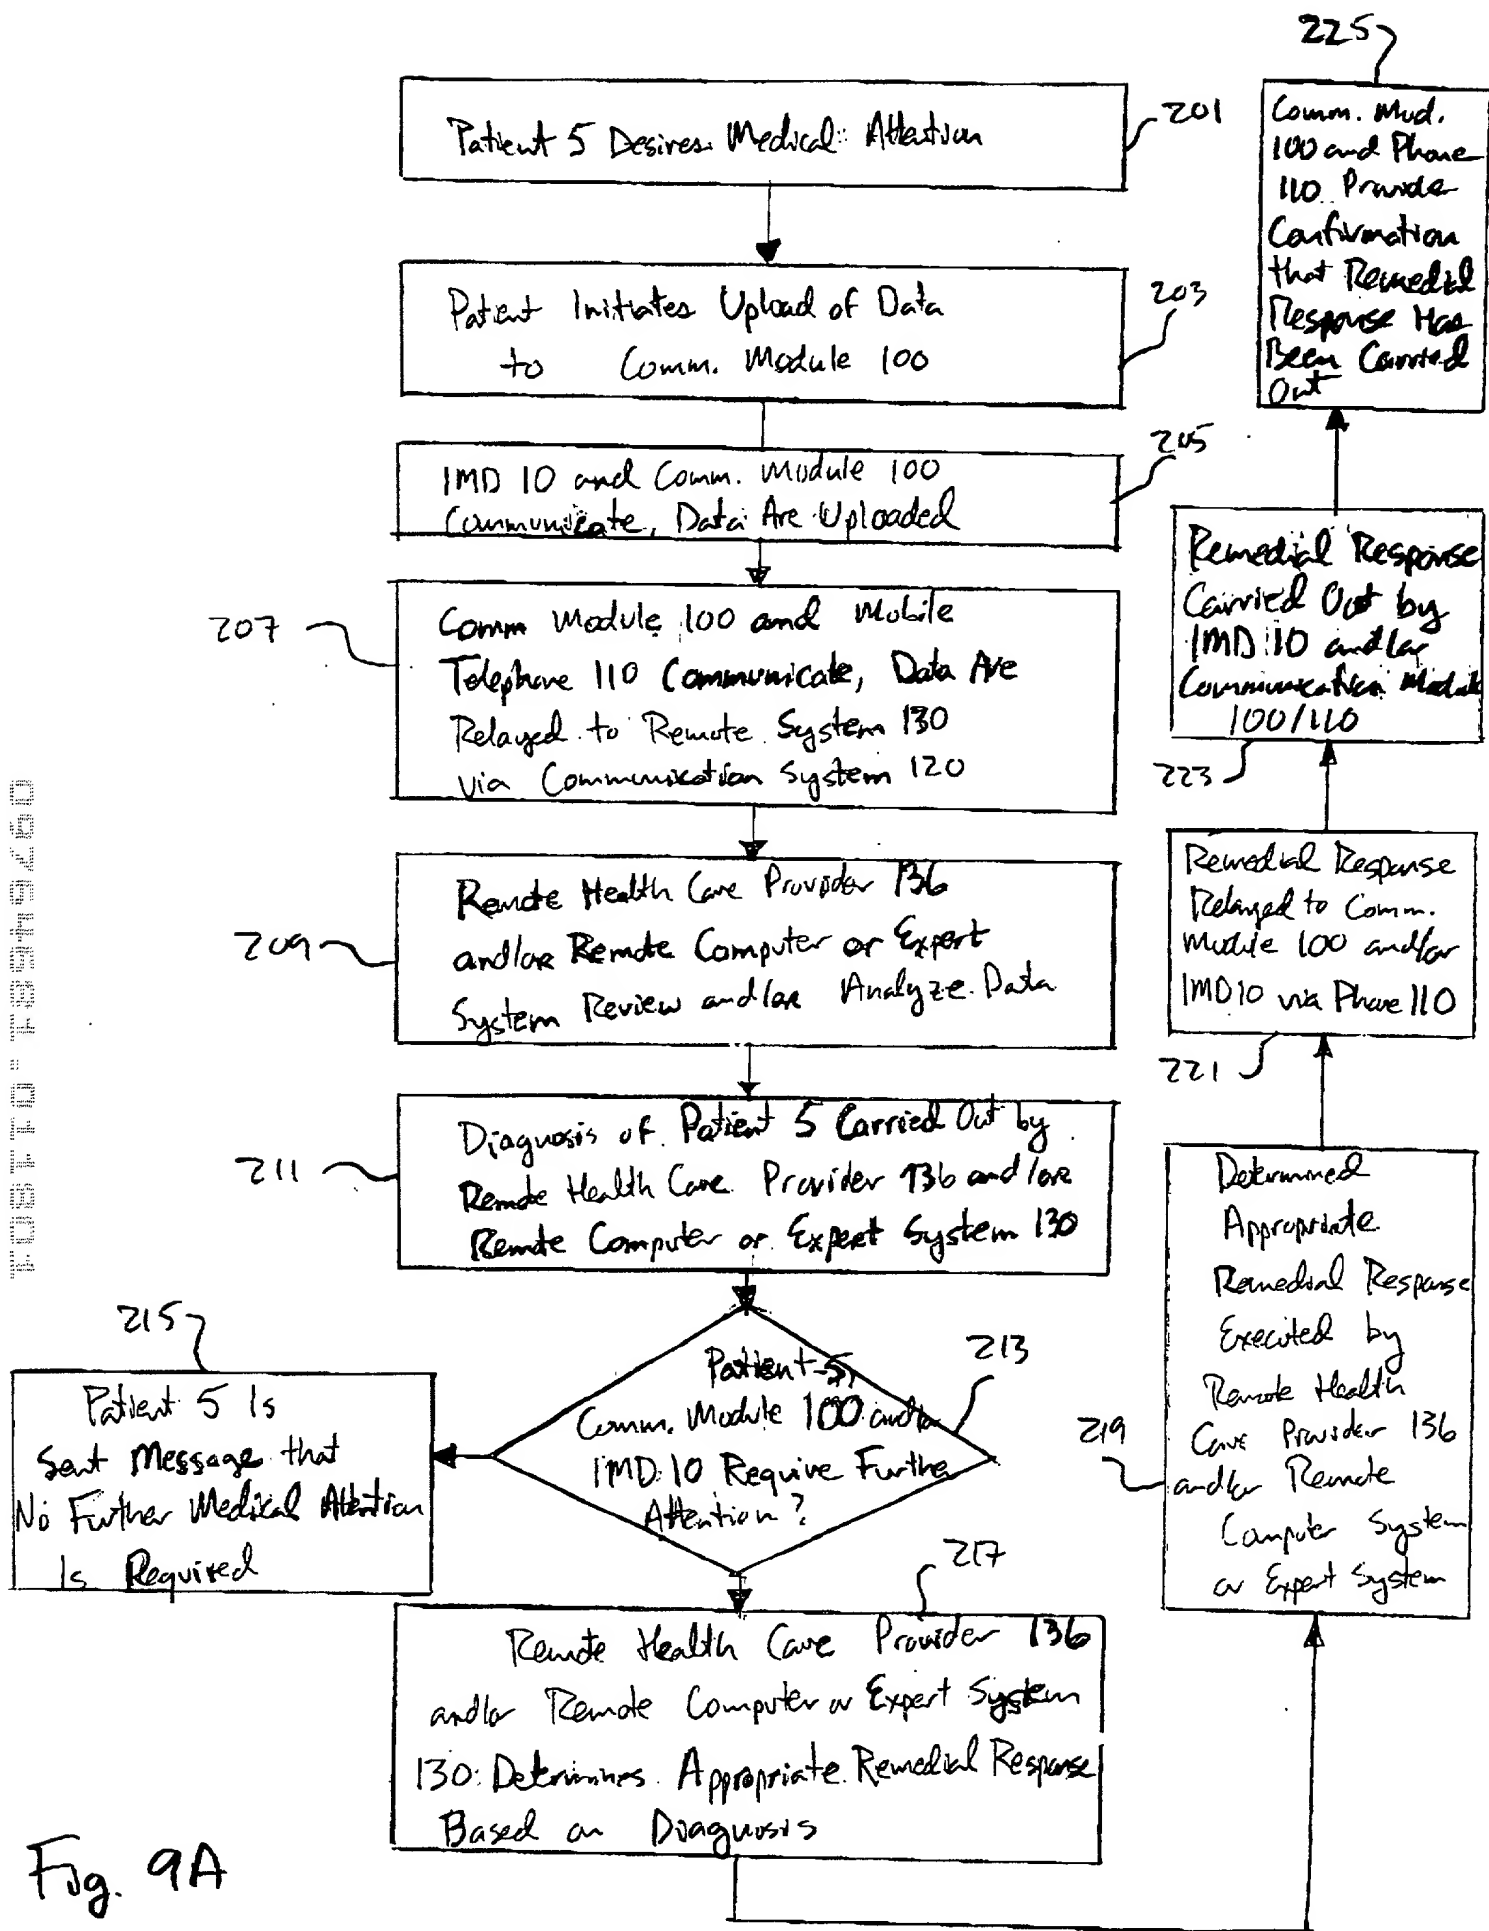 Patient 5 Desires Medical Attention
201
Patient Initiates Upload of Data
to Comm. Module 100
203
IMD 10 and Comm. Module 100
Communicate, Data Are Uploaded
205
207
Comm Module 100 and Mobile
Telephone 110 Communicate, Data Are
Relayed to Remote System 130
via Communication System 120
209
Remote Health Care Provider 136
and/or Remote Computer or Expert
System Review and/or Analyze Data
211
Diagnosis of Patient 5 Carried Out by
Remote Health Care Provider 136 and/or
Remote Computer or Expert System 130
213
Patient 5,
Comm. Module 100 and/or
IMD 10 Require Further
Attention?
215
Patient 5 Is
Sent Message that
No Further Medical Attention
Is Required
217
Remote Health Care Provider 136
and/or Remote Computer or Expert System
130 Determines Appropriate Remedial Response
Based on Diagnosis
219
Determined
Appropriate
Remedial Response
Executed by
Remote Health
Care Provider 136
and/or Remote
Computer System
or Expert System
221
Remedial Response
Relayed to Comm.
Module 100 and/or
IMD 10 via Phone 110
223
Remedial Response
Carried Out by
IMD 10 and/or
Communication Module
100/110
225
Comm. Mod.
100 and Phone
110 Provide
Confirmation
that Remedial
Response Has
Been Carried
Out
Fig. 9A